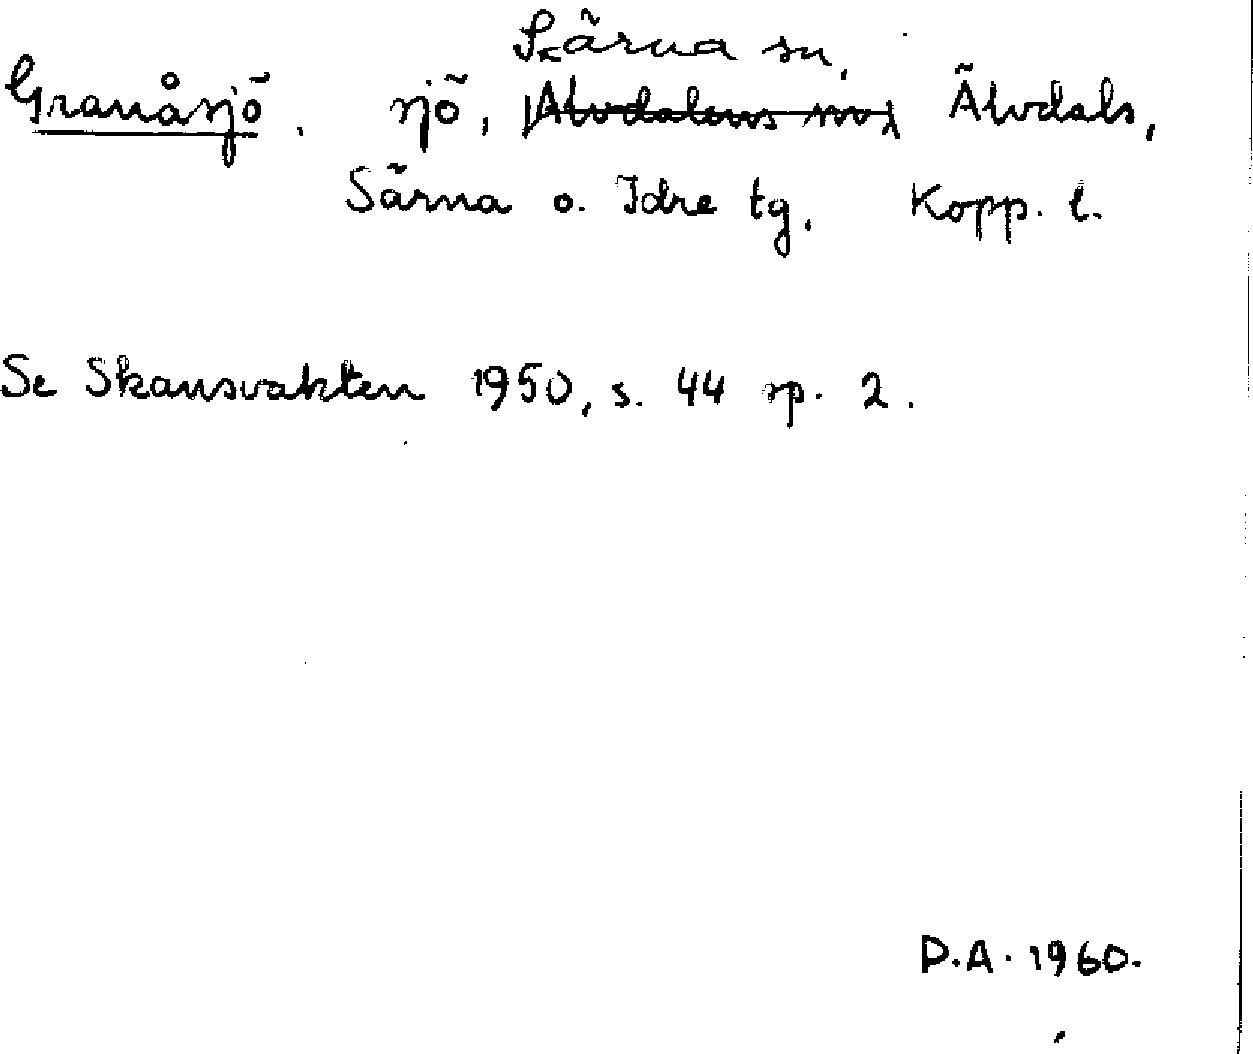 Särna sn,
Granåsjö. sjö, Älvdalens sn, Älvdals,
Särna o. Idre tg, Kopp. l.
Se Skansvakten 1950, s. 44 sp. 2.
D.A. 1960.